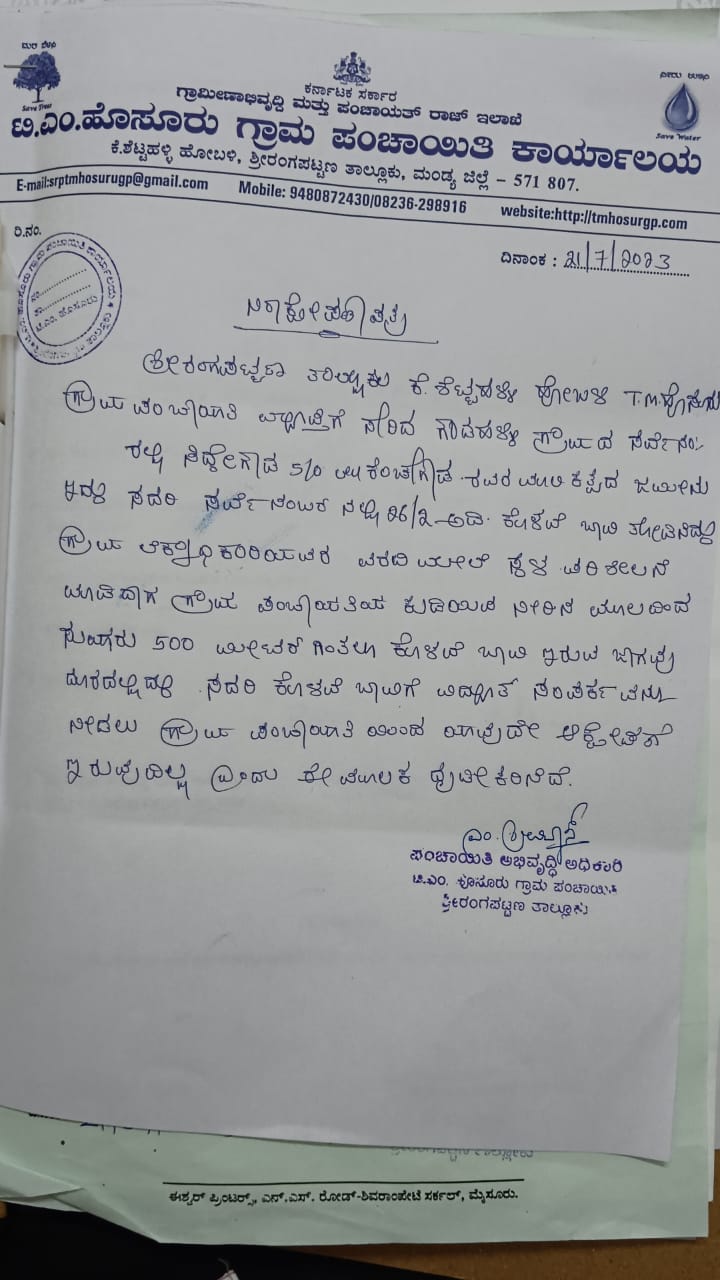 ಮರ ಬೆಳೆಸಿ
Save Tree
ನೀರು ಉಳಿಸಿ
Save Water
ಕರ್ನಾಟಕ ಸರ್ಕಾರ
ಗ್ರಾಮೀಣಾಭಿವೃದ್ಧಿ ಮತ್ತು ಪಂಚಾಯತ್ ರಾಜ್ ಇಲಾಖೆ
ಟಿ.ಎಂ.ಹೊಸೂರು ಗ್ರಾಮ ಪಂಚಾಯಿತಿ ಕಾರ್ಯಾಲಯ
ಕೆ.ಶೆಟ್ಟಹಳ್ಳಿ ಹೋಬಳಿ, ಶ್ರೀರಂಗಪಟ್ಟಣ ತಾಲ್ಲೂಕು, ಮಂಡ್ಯ ಜಿಲ್ಲೆ – 571 807.
E-mail:srptmhosurugp@gmail.com Mobile: 9480872430/08236-298916 website:http://tmhosurgp.com
ರಿ.ನಂ.
ದಿನಾಂಕ : 21/7/2023
ಟಿ.ಎಂ. ಹೊಸೂರು
ನಿರಾಕ್ಷೇಪಣಾ ಪತ್ರ
ಶ್ರೀರಂಗಪಟ್ಟಣ ತಾಲ್ಲೂಕು ಕೆ.ಶೆಟ್ಟಹಳ್ಳಿ ಹೋಬಳಿ T.M.ಹೊಸೂರು
ಗ್ರಾಮ ಪಂಚಾಯಿತಿ ವ್ಯಾಪ್ತಿಗೆ ಸೇರಿದ ಗೌಡಹಳ್ಳಿ ಗ್ರಾಮದ ಸರ್ವೆನಂ:
ರಲ್ಲಿ ಸಿದ್ದೇಗೌಡ S/o ಕೆಂಚೇಗೌಡ ರವರ ಮಾಲಿಕತ್ವದ ಜಮೀನು
ಇದ್ದು ಸದರಿ ಸರ್ವೆ ನಂಬರ್ ನಲ್ಲಿ 26/2 ಕೊಳವೆ ಬಾವಿ
ಗ್ರಾಮ ಲೆಕ್ಕಾಧಿಕಾರಿಯವರ ವರದಿ ಮೇಲೆ ಸ್ಥಳ ಪರಿಶೀಲನೆ
ಮಾಡಿದಾಗ ಗ್ರಾಮ ಪಂಚಾಯತಿಯ ಕುಡಿಯುವ ನೀರಿನ ಮೂಲದಿಂದ
ಸುಮಾರು 500 ಮೀಟರ್ ಗಿಂತಲೂ ಕೊಳವೆ ಬಾವಿ ಇರುವ ಜಾಗವು
ದೂರದಲ್ಲಿದ್ದು ಸದರಿ ಕೊಳವೆ ಬಾವಿಗೆ ವಿದ್ಯುತ್ ಸಂಪರ್ಕವನ್ನು
ನೀಡಲು ಗ್ರಾಮ ಪಂಚಾಯಿತಿ ಯಿಂದ ಯಾವುದೇ ಆಕ್ಷೇಪಣೆ
ಇರುವುದಿಲ್ಲ ಎಂದು ಈ ಮೂಲಕ ದೃಢೀಕರಿಸಿದೆ.
ಪಂಚಾಯಿತಿ ಅಭಿವೃದ್ಧಿ ಅಧಿಕಾರಿ
ಟಿ.ಎಂ. ಹೊಸೂರು ಗ್ರಾಮ ಪಂಚಾಯಿತಿ
ಶ್ರೀರಂಗಪಟ್ಟಣ ತಾಲ್ಲೂಕು
ಈಶ್ವರ್ ಪ್ರಿಂಟರ್ಸ್, ಎನ್.ಎಸ್. ರೋಡ್-ಶಿವರಾಂಪೇಟೆ ಸರ್ಕಲ್, ಮೈಸೂರು.